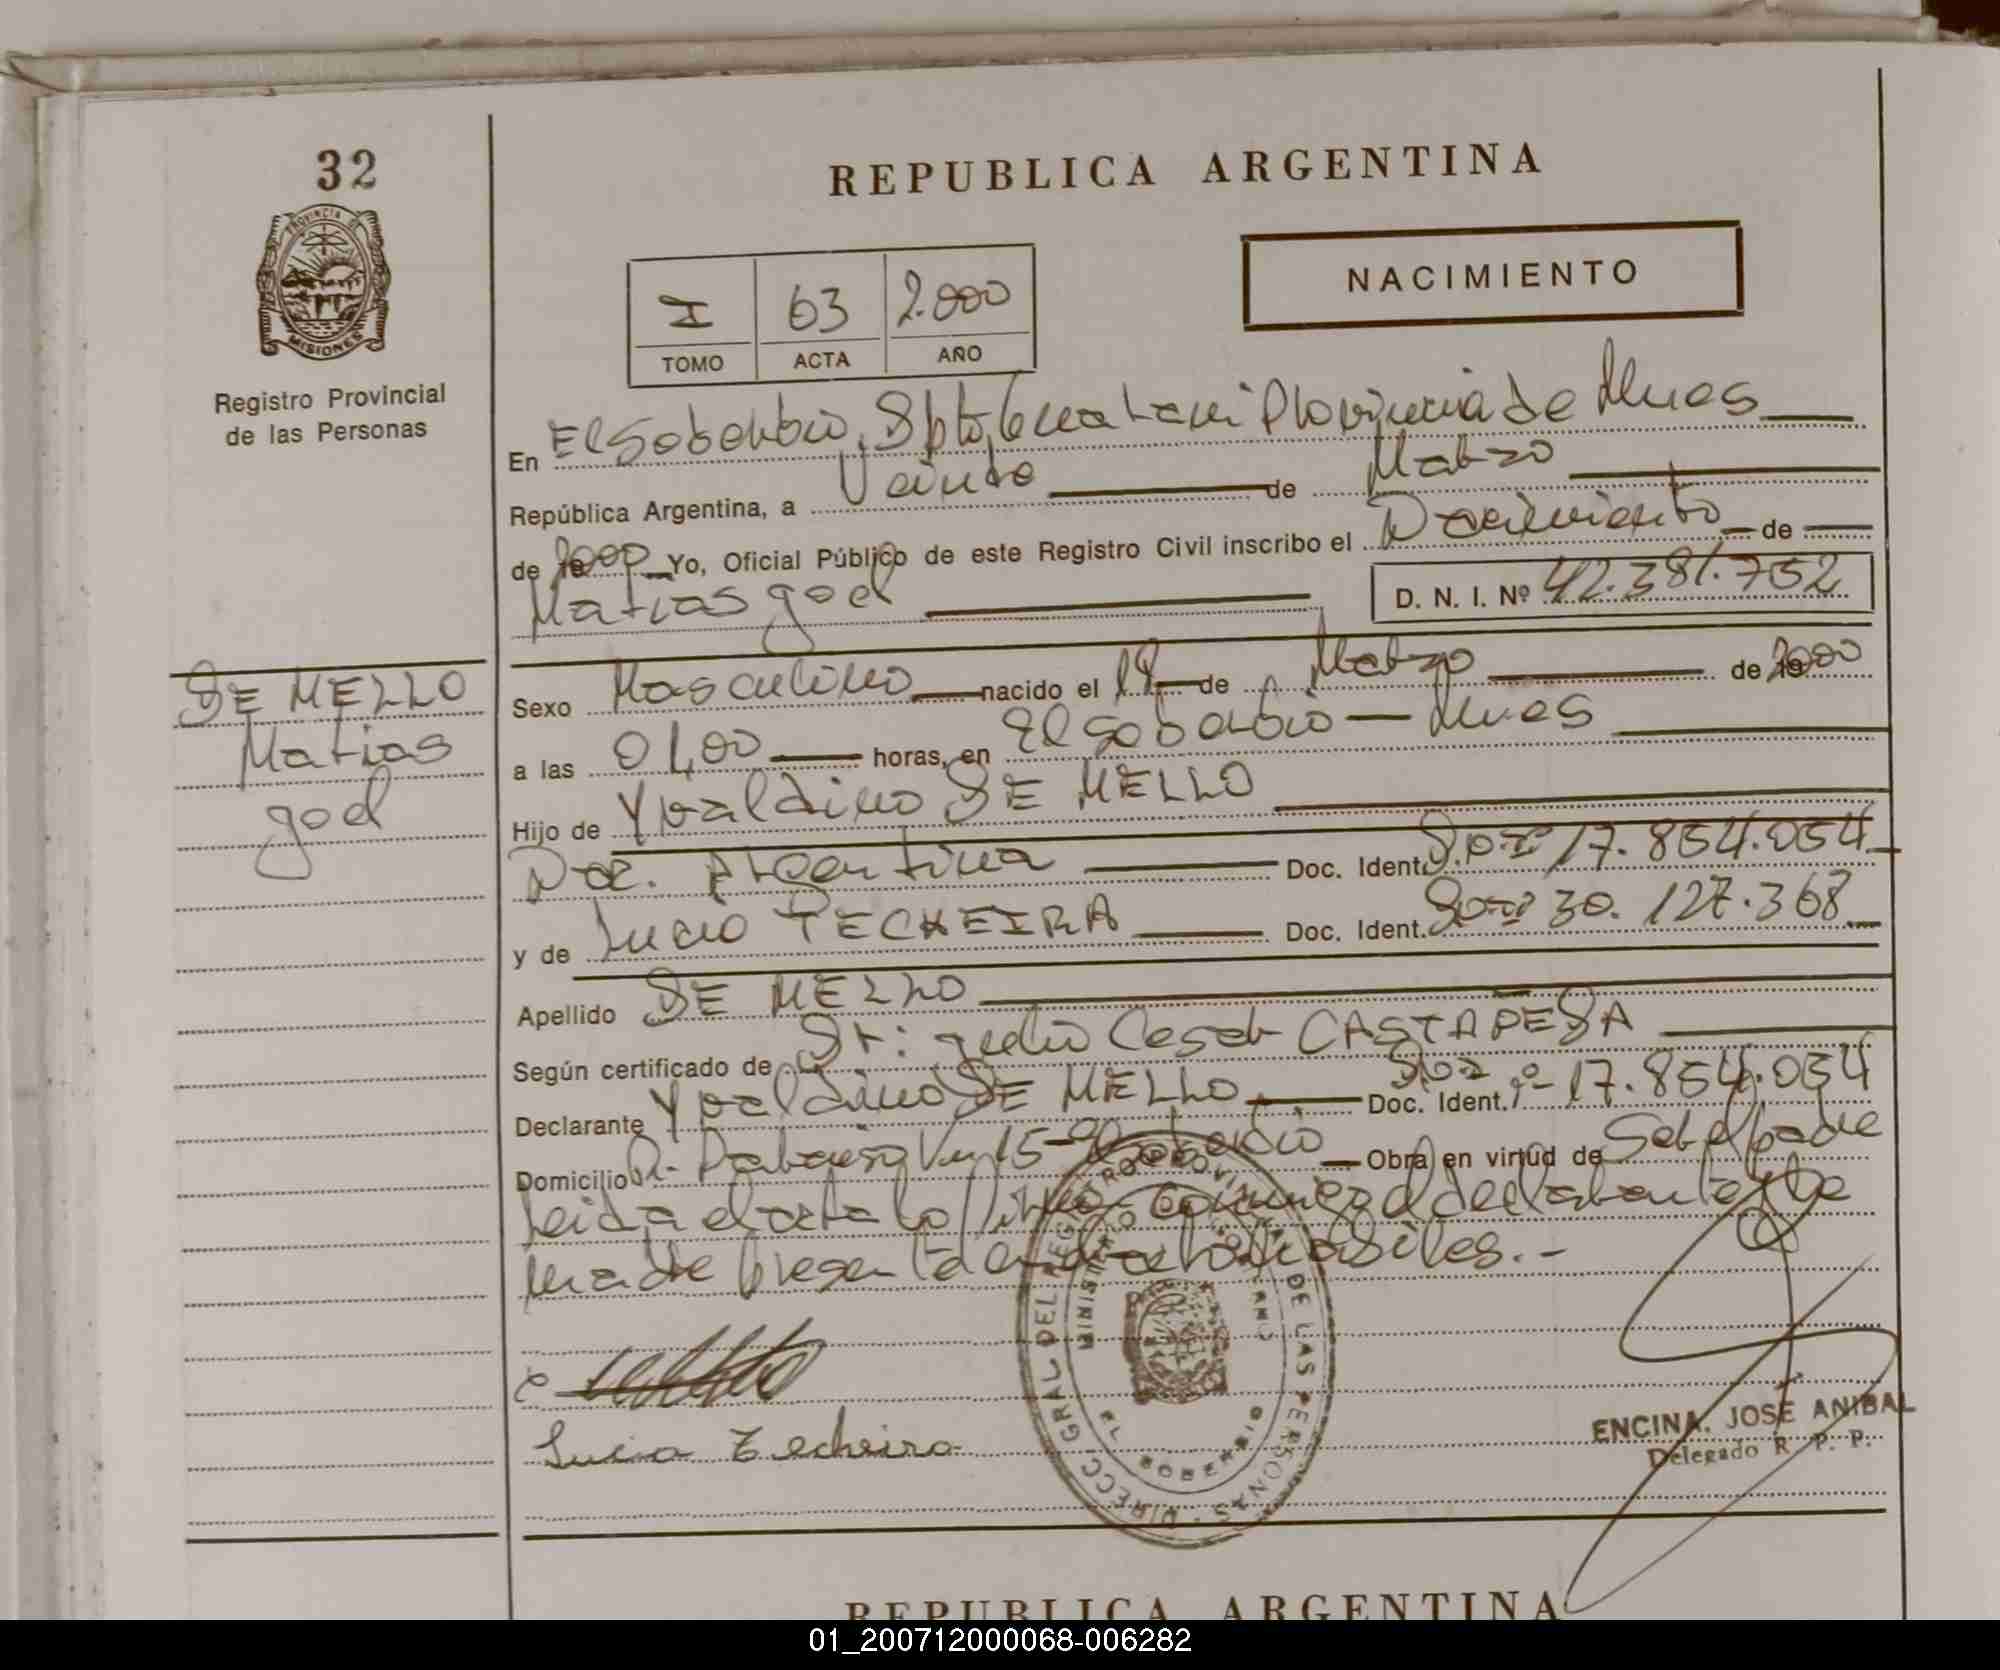 32
PROVINCIA DE
MISIONES
Registro Provincial
de las Personas
REPUBLICA ARGENTINA
NACIMIENTO
I 63 2.000
TOMO ACTA AÑO
En El Soberbio, Dpto. Guarani Provincia de Mnes
República Argentina, a Veinte de Marzo
de 19 2000 Yo, Oficial Público de este Registro Civil inscribo el Nacimiento de
Matias Joel D. N. I. Nº 42.381.752
DE MELLO
Matias
Joel
Sexo Masculino nacido el 19 de Marzo de 19 2000
a las 01,00 horas, en El Soberbio - Mnes
Hijo de Ypaldino DE MELLO
Nac. Argentina Doc. Ident. DNI 17.854.054
y de Lucia TECHEIRA Doc. Ident. DNI 30.127.368
Apellido DE MELLO
Según certificado de Dr: Julio Cesar CASTAPEDA
Declarante Ypaldino DE MELLO Doc. Ident. DNI Nº 17.854.054
Domicilio Paraiso Km 15 - El Soberbio Obra en virtud de Ser el padre
Leida el acta la firma conmigo el declarante y la
madre presenta
Lucia Techeira
DIRECC. GRAL DEL REG. PROVINCIAL DE LAS PERSONAS
EL SOBERBIO
ENCINA, JOSÉ ANIBAL
Delegado R. P. P.
REPUBLICA ARGENTINA
01_200712000068-006282